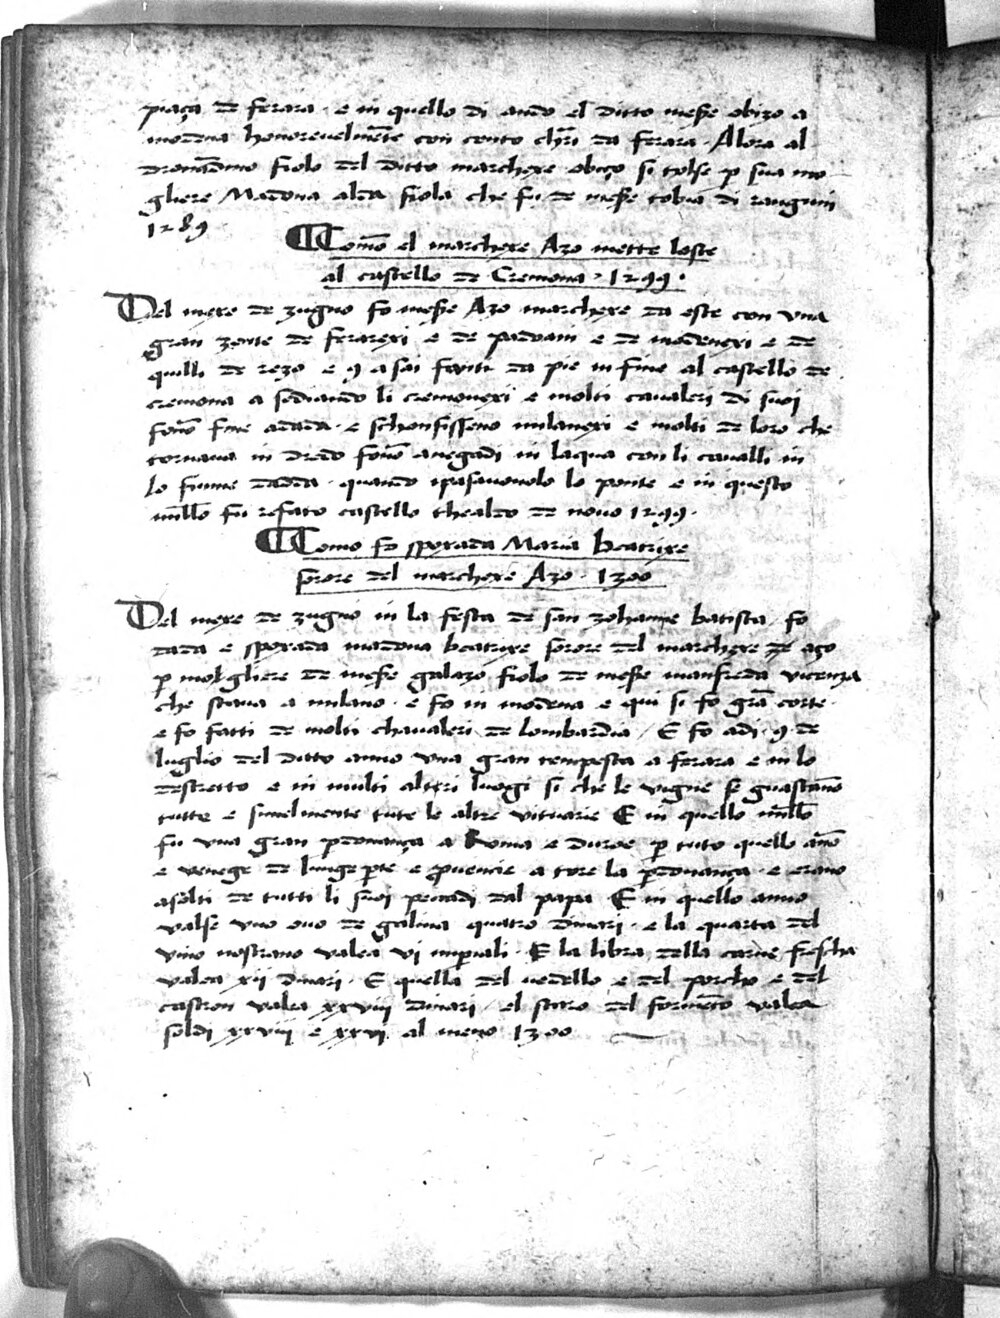 piaça de ferara · e in quello di ando el ditto mess̄e obizo a
modena honorevelmēte con cento chr̄i da ferara · Alora al
drouādino fiolo del ditto marchexe obiço si tolse p̄ sua mo
gliere Madona alda fiola che fu de mess̄e tobia di rangoni
1289
Comō el marchexe Azo mette loste
al castello de Cremona · 1299 ·
Del mexe de zugno fo mess̄e Azo marchexe da este con una
gran zente de ferarexi e de padoani e de modenexi e de
quilli de rezo e 9 asai fanti da pie in fine al castello de
cremona asediando li cremonexi e molti cavaleri di suoi
fonō fine adada · e schonfisseno milanexi e molti de loro che
tornava in dredo fonō anegadi in laqua con li cavalli in
lo fiume dadda · quando ipasavonolo lo ponte e in questo
mill̄o fu refato castello thealdo de novo 1299 ·
Como fo sposada Maria beatrixe
sorore del marchexe Azo · 1300
Del mexe de zugno in la festa de san zohanne batista · fo
dada e sposada madona beatrixe sorore del marchexe de aço
p̄ molgliere de mess̄e galazo fiolo de mess̄e manfreda vicenza
che stava a milano · e fo in modena e qui si fo grā corte ·
e fo fatti de molti chavaleri de lombardia / E fo adi · 9 de
luglio del ditto anno una gran tempesta a ferara e in lo
destretto e in multi altri luogi si che le vigne se guastāno
tutte e simelmente tute le altre vituarie E in quello mill̄o
fu una gran p̄donança a Roma e duroe p̄ tuto quello āno
e venege de lunge p̄te e provencie a tore la p̄donança · e erano
asolti de tutti li suoi peccadi dal papa E in quello anno
valse uno ovo de galina quatro dinari · e la quarta del
vino nostrano valea vi inperiali · E la libra della carne frescha
valea xii dinari · E quella del vedello e del porcho e del
castron valea xxviii dinari · el staro del formēto valea
soldi xxviii e xxvi al meno 1300